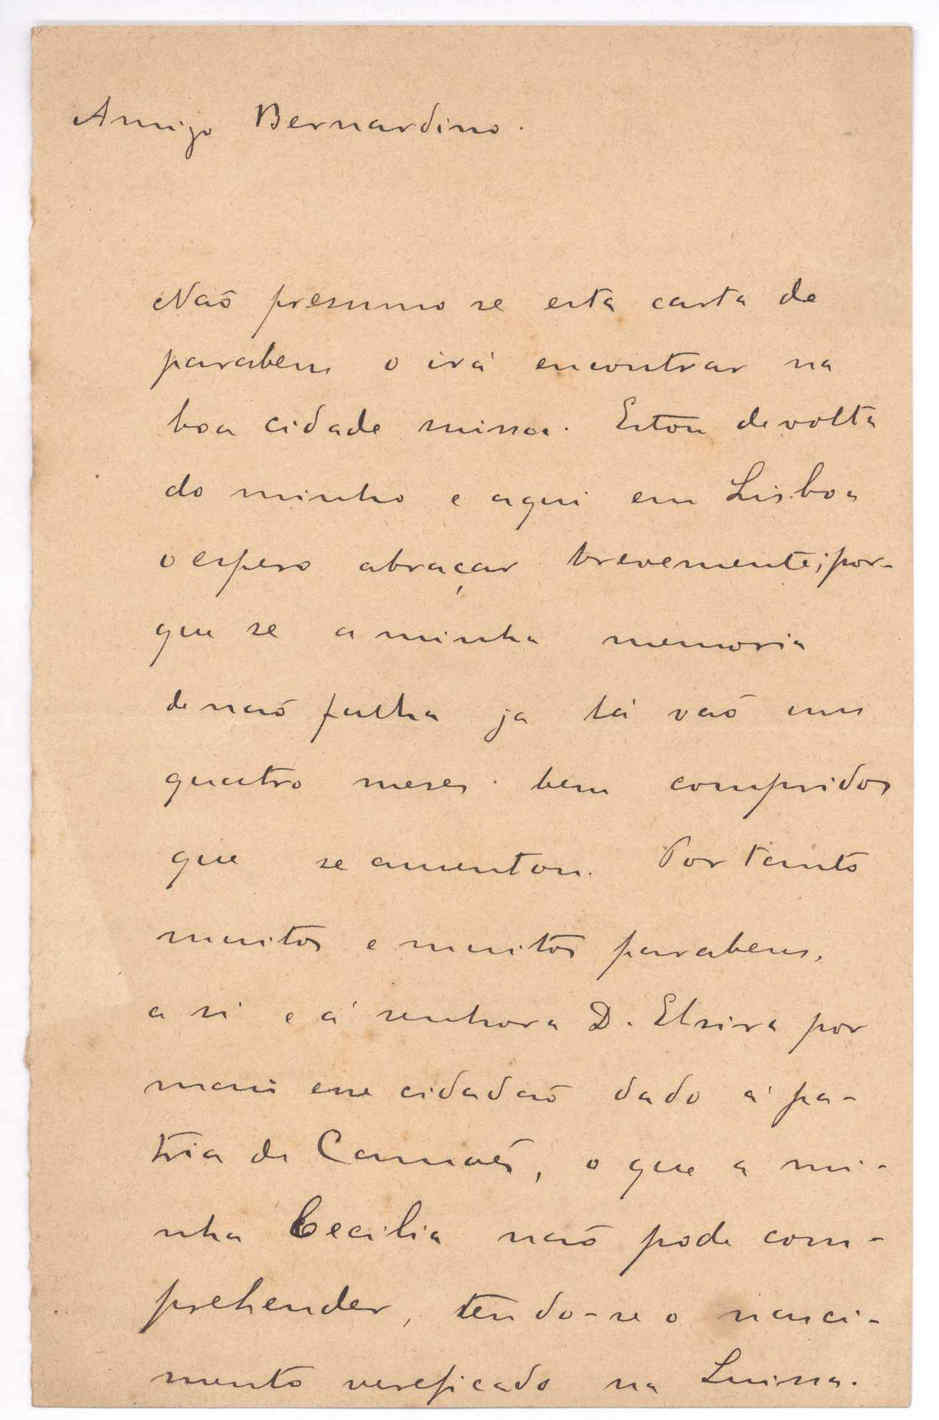 Amigo Bernardino.
Não presumo se esta carta de
parabens o irá encontrar na
boa cidade suissa. Estou de volta
do minho e aqui em Lisboa
o espero abraçar brevemente; por-
que se a minha memoria
de não falha ja lá vão uns
quatro meses bem compridos
que se amentou. Por tanto
muitos e muitos parabens,
a si e á senhora D. Elzira por
mais um cidadão dado á pa-
tria de Camões, o que a mi-
nha Cecilia não pode com-
prehender, tendo-se o nasci-
mento vereficado na Suissa.